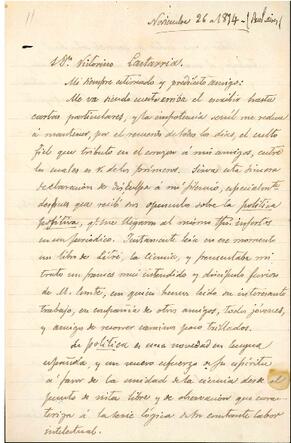 11
Noviembre 26 - 1874 -
Sr. Dn. Victorino Lastarria.
Mi siempre estimado y predilecto amigo:
Me va siendo cuesta arriba el escribir hasta
cartas particulares, y la impotencia senil me reduce
a mantener, por el recuerdo de todos los dias, el culto
fiel que tributo en el corazon á mis amigos, entre
los cuales es V. de los primeros. Sirva esta sincera
declaracion de disculpa á mi silencio, especialmte.
despues que recibí su opúsculo sobre la política
positiva, qe. me llegaron al mismo tpo. impresos
en un periódico. Justamente leia en ese momento
un libro de Litré, la Ciencia, y frecuentaba mi
trato un frances mui entendido y discípulo
de M. Comte, en quien hemos leido su interesante
trabajo, en compañia de otros amigos, todos jóvenes,
y amigos de recorrer caminos poco trillados.
La política es una novedad en lengua
española, y un nuevo esfuerzo de su espíritu
á favor de la unidad de la ciencia desde el
punto de vista libre y de observacion que carac-
teriza á la serie lógica de su constante labor
intelectual.